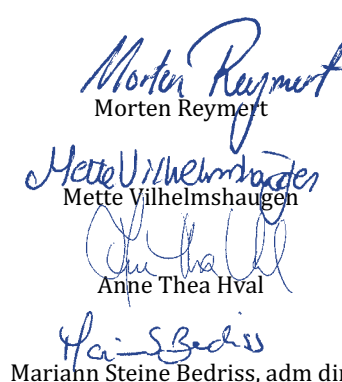 Morten Reymert
Morten Reymert
Mette Vilhelmshaugen
Mette Vilhelmshaugen
Anne Thea Hval
Anne Thea Hval
Mariann S Bedriss
Mariann Steine Bedriss, adm dir